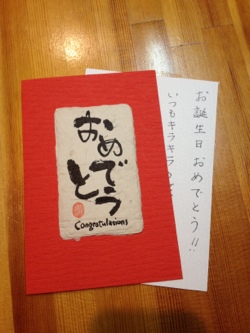 おめでとう
Congratulations
お誕生日おめでとう!!
いつもキラキラ